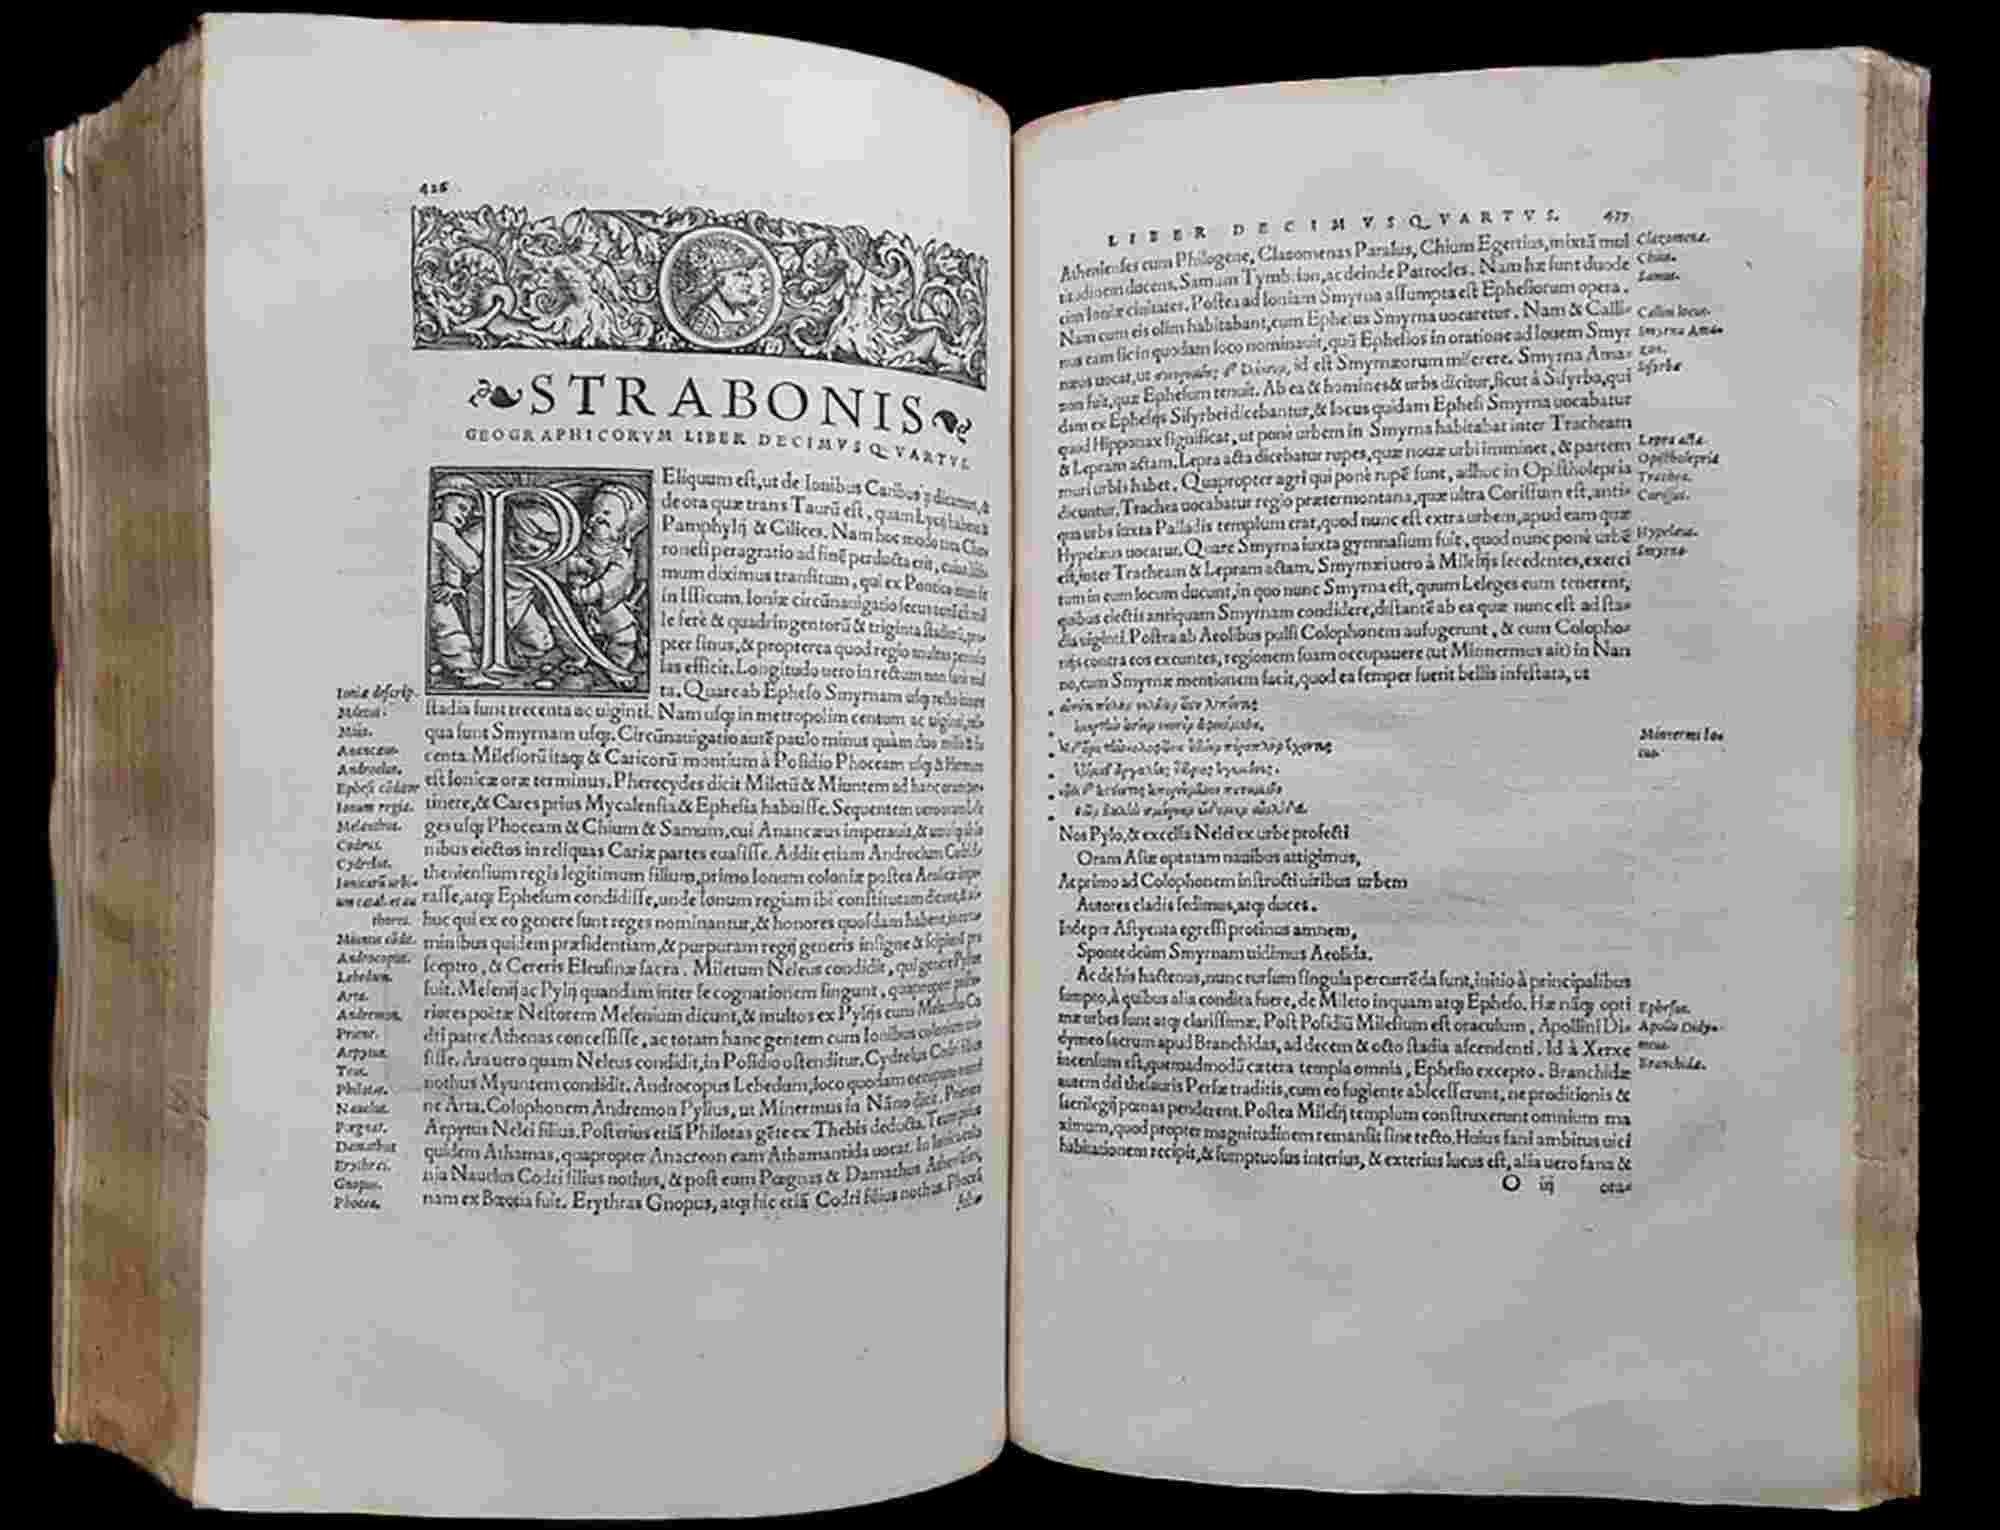 426
STRABONIS
GEOGRAPHICORVM LIBER DECIMVS QVARTVS.
REliquum est, ut de Ionibus Caribusq; dicamus, &
de ora quæ trans Taurũ est, quam Lycij habent &
Pamphylij & Cilices. Nam hoc modo tota Cher
ronesi peragratio ad finẽ perducta erit, cuius
mum diximus transitum, qui ex Pontico mari fit
in Issicum. Ioniæ circũnauigatio secus
le ferè & quadringentorũ & triginta stadiorũ, pro
pter sinus, & propterea quod regio multas penisu
las efficit. Longitudo uero in rectum non
ta. Quare ab Epheso Smyrnam usq; recto itinere
stadia sunt trecenta ac uiginti. Nam usq; in metropolim centum ac uiginti,
qua sunt Smyrnam usq;. Circũnauigatio autẽ paulo minus quàm duo
centa. Milesiorũ itaq; & Caricorũ montium à Posidio Phoceam usq; & Hermum
est Ionicæ oræ terminus. Pherecydes dicit Miletũ & Miuntem ad hanc oram per=
tinere, & Cares prius Mycalensia & Ephesia habuisse. Sequentem
ges usq; Phoceam & Chium & Samum, cui Ancæus imperauit, &
nibus eiectos in reliquas Cariæ partes euasisse. Addit etiam Androclum Codri A=
theniensium regis legitimum filium, primo Ionum coloniæ postea Aeolicæ impe=
rasse, atq; Ephesum condidisse, unde Ionum regiam ibi constitutam dicunt, & ad=
huc qui ex eo genere sunt reges nominantur, & honores quosdam habent,
minibus quidem præsidentiam, & purpuram regij generis insigne & scipionẽ pro
sceptro, & Cereris Eleusinæ sacra. Miletum Neleus condidit, qui genere Pylius
fuit. Messenij ac Pylij quandam inter se cognationem fingunt, quapropter
riores poëtæ Nestorem Messenium dicunt, & multos ex Pylijs cum Melantho Co
dri patre Athenas concessisse, ac totam hanc gentem cum Ionibus coloniam
sisse. Ara uero quam Neleus condidit, in Posidio ostenditur. Cydrelus Codri filius
nothus Myuntem condidit. Androcopus Lebedum, loco quodam occupato
ne Arta. Colophonem Andremon Pylius, ut Minermus in Nãno dicit. Prienen
Aepytus Nelei filius. Posterius etiã Philotas gẽte ex Thebis deducta. Teum prius
quidem Athamas, quapropter Anacreon eam Athamantida uocat. In
nia Nauclus Codri filius nothus, & post eum Pœgnas & Damathus Athenienses,
nam ex Bœotia fuit. Erythras Gnopus, atq; hic etiã Codri filius nothus. Phoceã
Ioniæ descrip.
Miletus.
Androclus.
Ephesi cõditor
Ionum regia.
Melanthus.
Codrus.
Cydrelus.
Ionicarũ urbi=
um catal. et au
thores.
Miuntis cõdit.
Androcopus.
Lebedum.
Arta.
Andremon.
Priene.
Aepytus.
Teus.
Philotas.
Nauclus.
Pœgnas.
Damathus
Erythrei.
Gnopus.
Phocea.
LIBER DECIMVS QVARTVS. 427
Athenienses cum Philogene, Clazomenas Paralus, Chium Egertius, mixtã mul
titudinem ducens, Samum Tymbrion, ac deinde Patrocles. Nam hæ sunt duode
cim Ioniæ ciuitates. Postea ad Ioniam Smyrna assumpta est Ephesiorum opera.
Nam cum eis olim habitabant, cum Ephesus Smyrna uocaretur. Nam & Calli=
nus eam sic in quodam loco nominauit, quũ Ephesios in oratione ad Iouem Smyr
næos uocat, ut id est Smyrnæorum miserere. Smyrna Ama=
zon fuit, quæ Ephesum tenuit. Ab ea & homines & urbs dicitur, sicut à Sisyrba, qui
dam ex Ephesijs Sisyrbei dicebantur, & locus quidam Ephesi Smyrna uocabatur
quod Hipponax significat, ut ponè urbem in Smyrna habitabat inter Tracheam
& Lepram actam. Lepra acta dicebatur rupes, quæ nouæ urbi imminet, & partem
muri urbis habet. Quapropter agri qui ponè rupẽ sunt, adhoc in Opistholepria
dicuntur. Trachea uocabatur regio prætermontana, quæ ultra Corissum est, anti=
qua urbs iuxta Palladis templum erat, quod nunc est extra urbem, apud eam quæ
Hypelæus uocatur. Quare Smyrna iuxta gymnasium fuit, quod nunc ponè urbẽ
est, inter Tracheam & Lepram actam. Smyrnæi uero à Milesijs secedentes, exerci
tum in eum locum ducunt, in quo nunc Smyrna est, quum Leleges eum tenerent,
quibus eiectis antiquam Smyrnam condidere, distantẽ ab ea quæ nunc est ad sta=
dia uiginti. Postea ab Aeolibus pulsi Colophonem aufugerunt, & cum Colopho=
nijs contra eos exeuntes, regionem suam occupauere (ut Minnermus ait) in Nan
no, cum Smyrnæ mentionem facit, quod ea semper fuerit bellis infestata, ut
Nos Pylo, & excelsa Nelei ex urbe profecti
Oram Asiæ optatam nauibus attigimus,
Ac primo ad Colophonem instructi uiribus urbem
Autores cladis sedimus, atq; duces.
Inde per Astyenta egressi protinus amnem,
Sponte deûm Smyrnam uidimus Aeolida.
Ac de his hactenus, nunc rursum singula percurrẽda sunt, initio à principalibus
sumpto, à quibus alia condita fuere, de Mileto inquam atq; Epheso. Hæ nãq; opti
mæ urbes sunt atq; clarissimæ. Post Posidiũ Milesium est oraculum, Apollini Di=
dymeo sacrum apud Branchidas, ad decem & octo stadia ascendenti. Id à Xerxe
incensum est, quemadmodũ cætera templa omnia, Ephesio excepto. Branchidæ
autem dei thesauris Persæ traditis, cum eo fugiente abscesserunt, ne proditionis &
sacrilegij pœnas penderent. Postea Milesij templum construxerunt omnium ma
ximum, quod propter magnitudinem remansit sine tecto. Huius fani ambitus uici
habitationem recipit, & sumptuosus interius, & exterius lucus est, alia uero fana &
O iij ora=
Clazomenæ.
Chius.
Samus.
Callini locus.
Smyrna Ama=
zon.
Sisyrba
Lepra acta.
Opistholepria
Trachea.
Corissus.
Hypelæus.
Smyrna
Minermi lo=
cus.
Ephesus.
Apollo Didy=
meus.
Branchidæ.